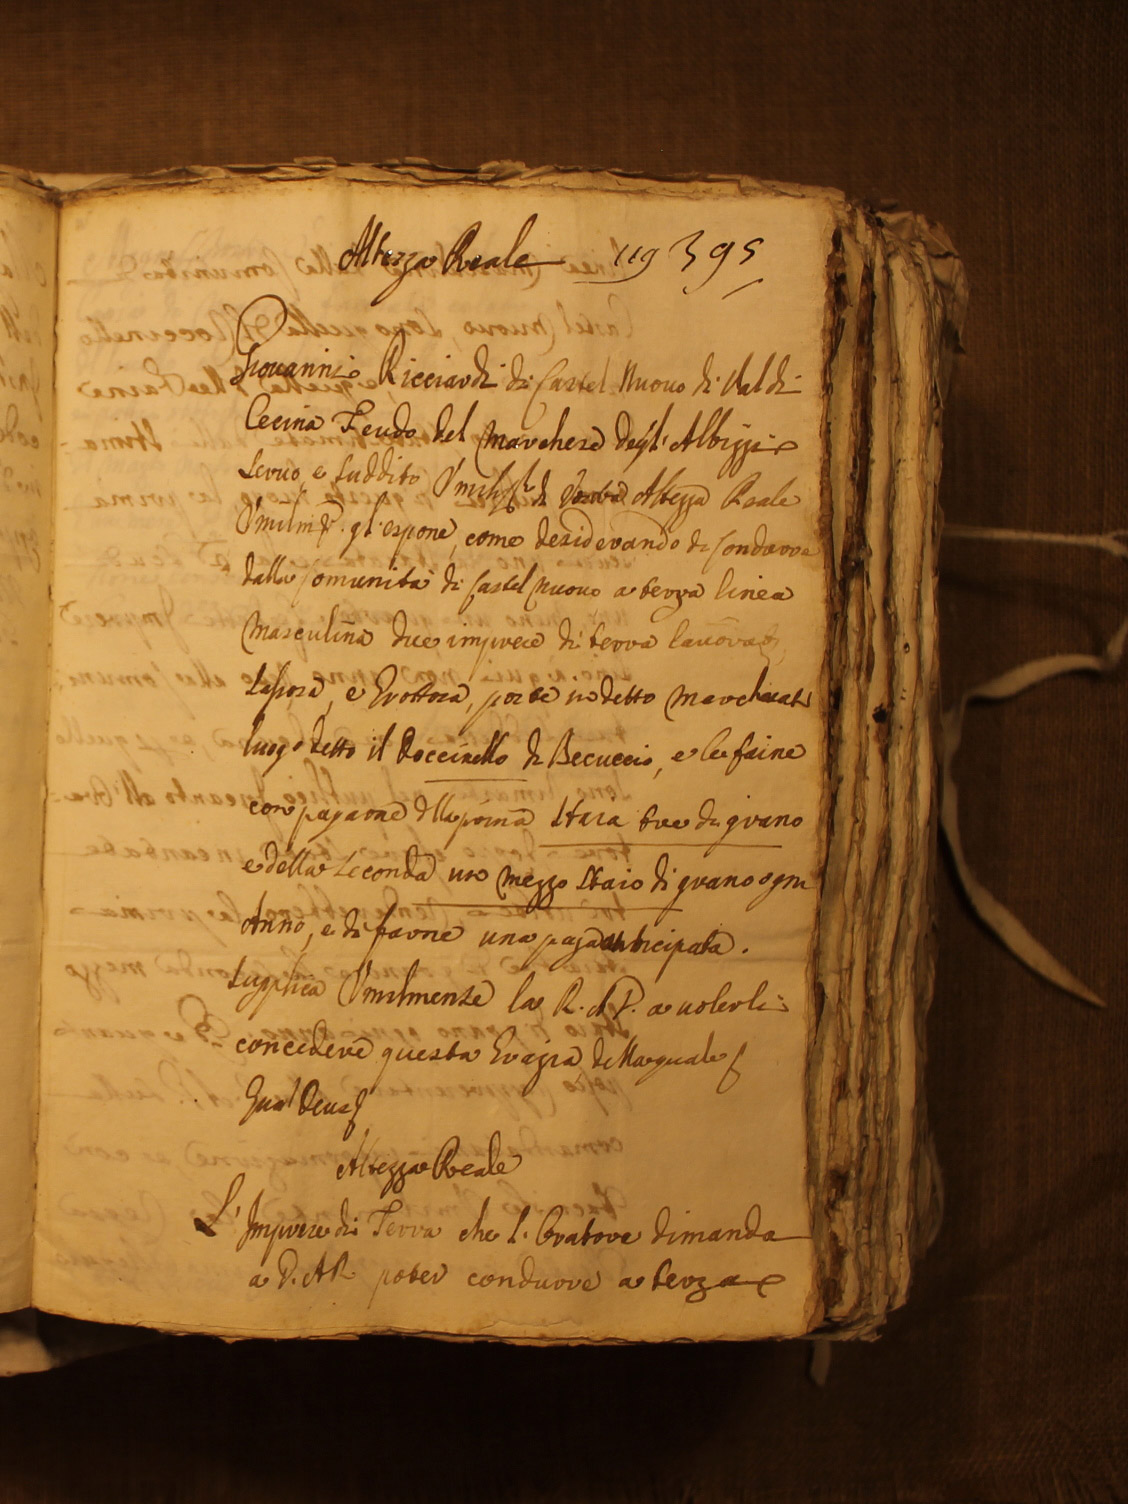 Altezza Reale 119 395
Giovanni Ricciardi di Castel Nuovo di Val di
Cecina Feudo del Marchese degl' Albizzi
servo, e suddito Umiliss. di Vostra Altezza Reale
Umilm.te gl'espone, come desiderando di condurre
dalla Comunità di Castel Nuovo a terza linea
Masculina due imprese di terra lavorat.
e Grottosa, poste in detto Marchesat
luogo detto il Doccinello di Becuccio, e le faine
con pagarne della prima staia tre di grano
e della seconda uno mezzo staio di grano ogni
Anno, e di farne una paga anticipata.
Supplica Umilmente la R. A. V. a volerli
concedere questa Grazia della quale
Qual Deus
Altezza Reale
L' Imprese di Terra che l' Oratore dimanda
a V. A. R. poter condurre a terza